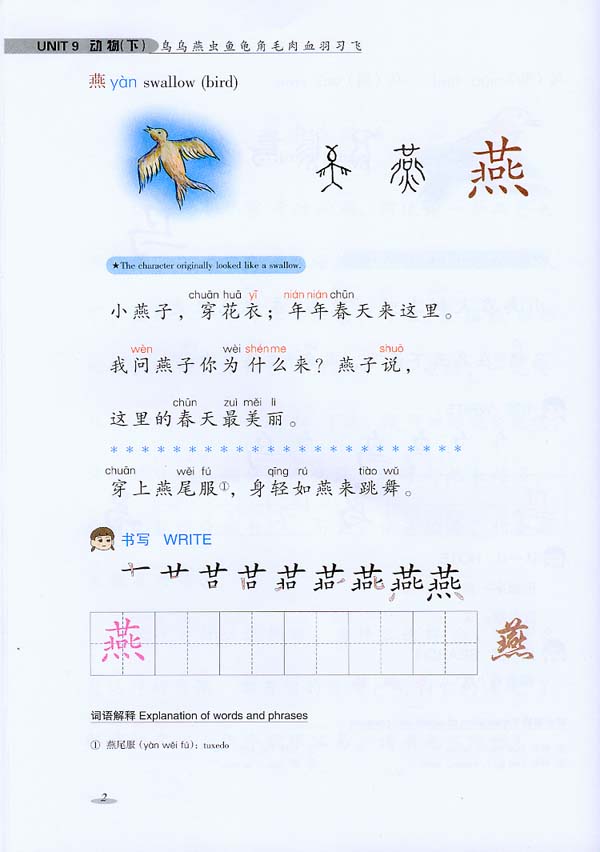 UNIT 9 动物(下) 鸟乌燕虫鱼龟角毛肉血羽习飞
燕 yàn swallow (bird)
燕
★The character originally looked like a swallow.
chuān huā yī nián nián chūn
小燕子，穿花衣；年年春天来这里。
wèn wèi shén me shuō
我问燕子你为什么来？燕子说，
chūn zuì měi lì
这里的春天最美丽。
* * * * * * * * * * * * * * * * * * * * * * * * * * *
chuān wěi fú qīng rú tiào wǔ
穿上燕尾服①，身轻如燕来跳舞。
书写 WRITE
燕 燕
词语解释 Explanation of words and phrases
① 燕尾服 (yàn wěi fú)：tuxedo
2